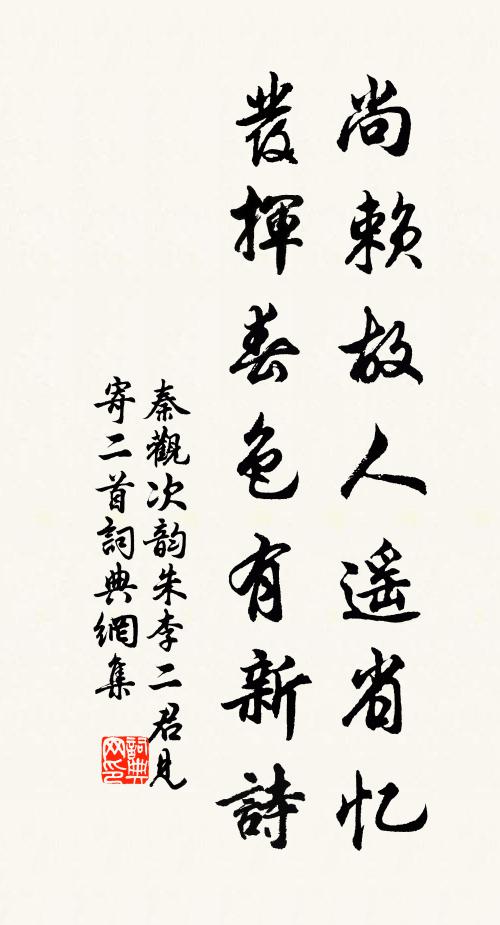 尚赖故人遥省忆
發揮春色有新詩
秦觀次韵朱李二君見
寄二首詞典網集
詞典
网印